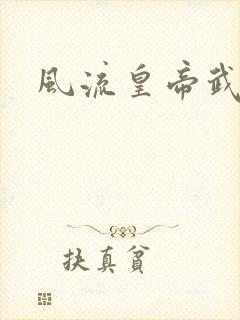 風流皇帝武
扶真貧